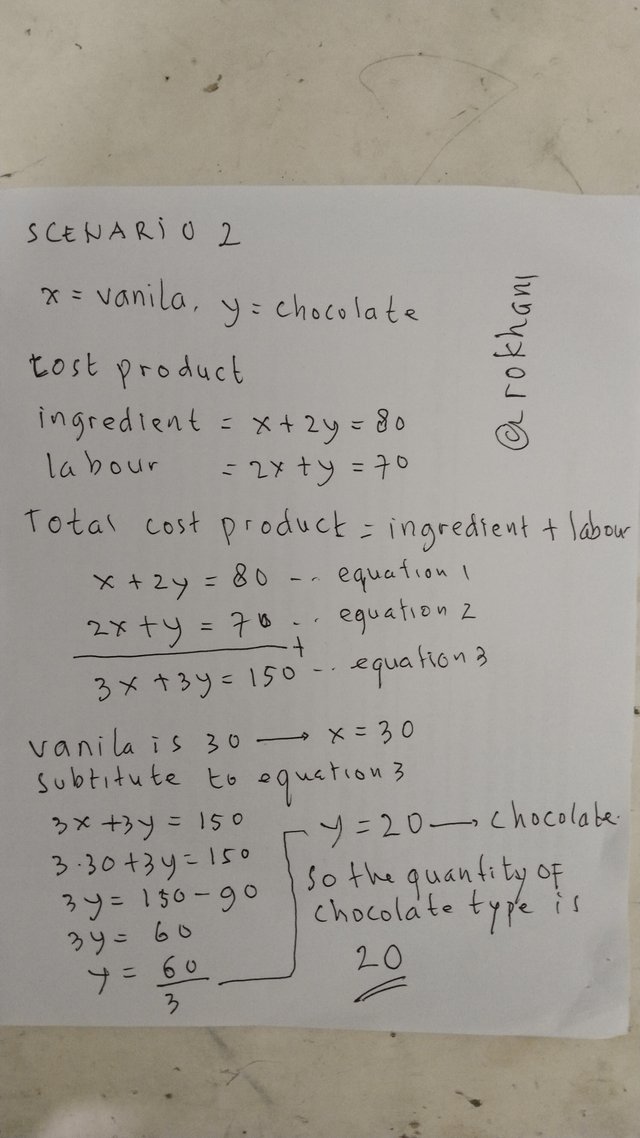 SCENARiO 2
x = vanila, y = chocolate
@rokhani
Cost product
ingredient = x + 2y = 80
labour = 2x + y = 70
Total cost product = ingredient + labour
x + 2y = 80 -.. equation 1
2x + y = 70 ... equation 2
+
3x + 3y = 150 -.. equation 3
vanila is 30 → x = 30
subtitute to equation 3
3x + 3y = 150
3·30 + 3y = 150
3y = 150 - 90
3y = 60
y = 60
3
y = 20 → chocolate.
so the quantity of
chocolate type is
20